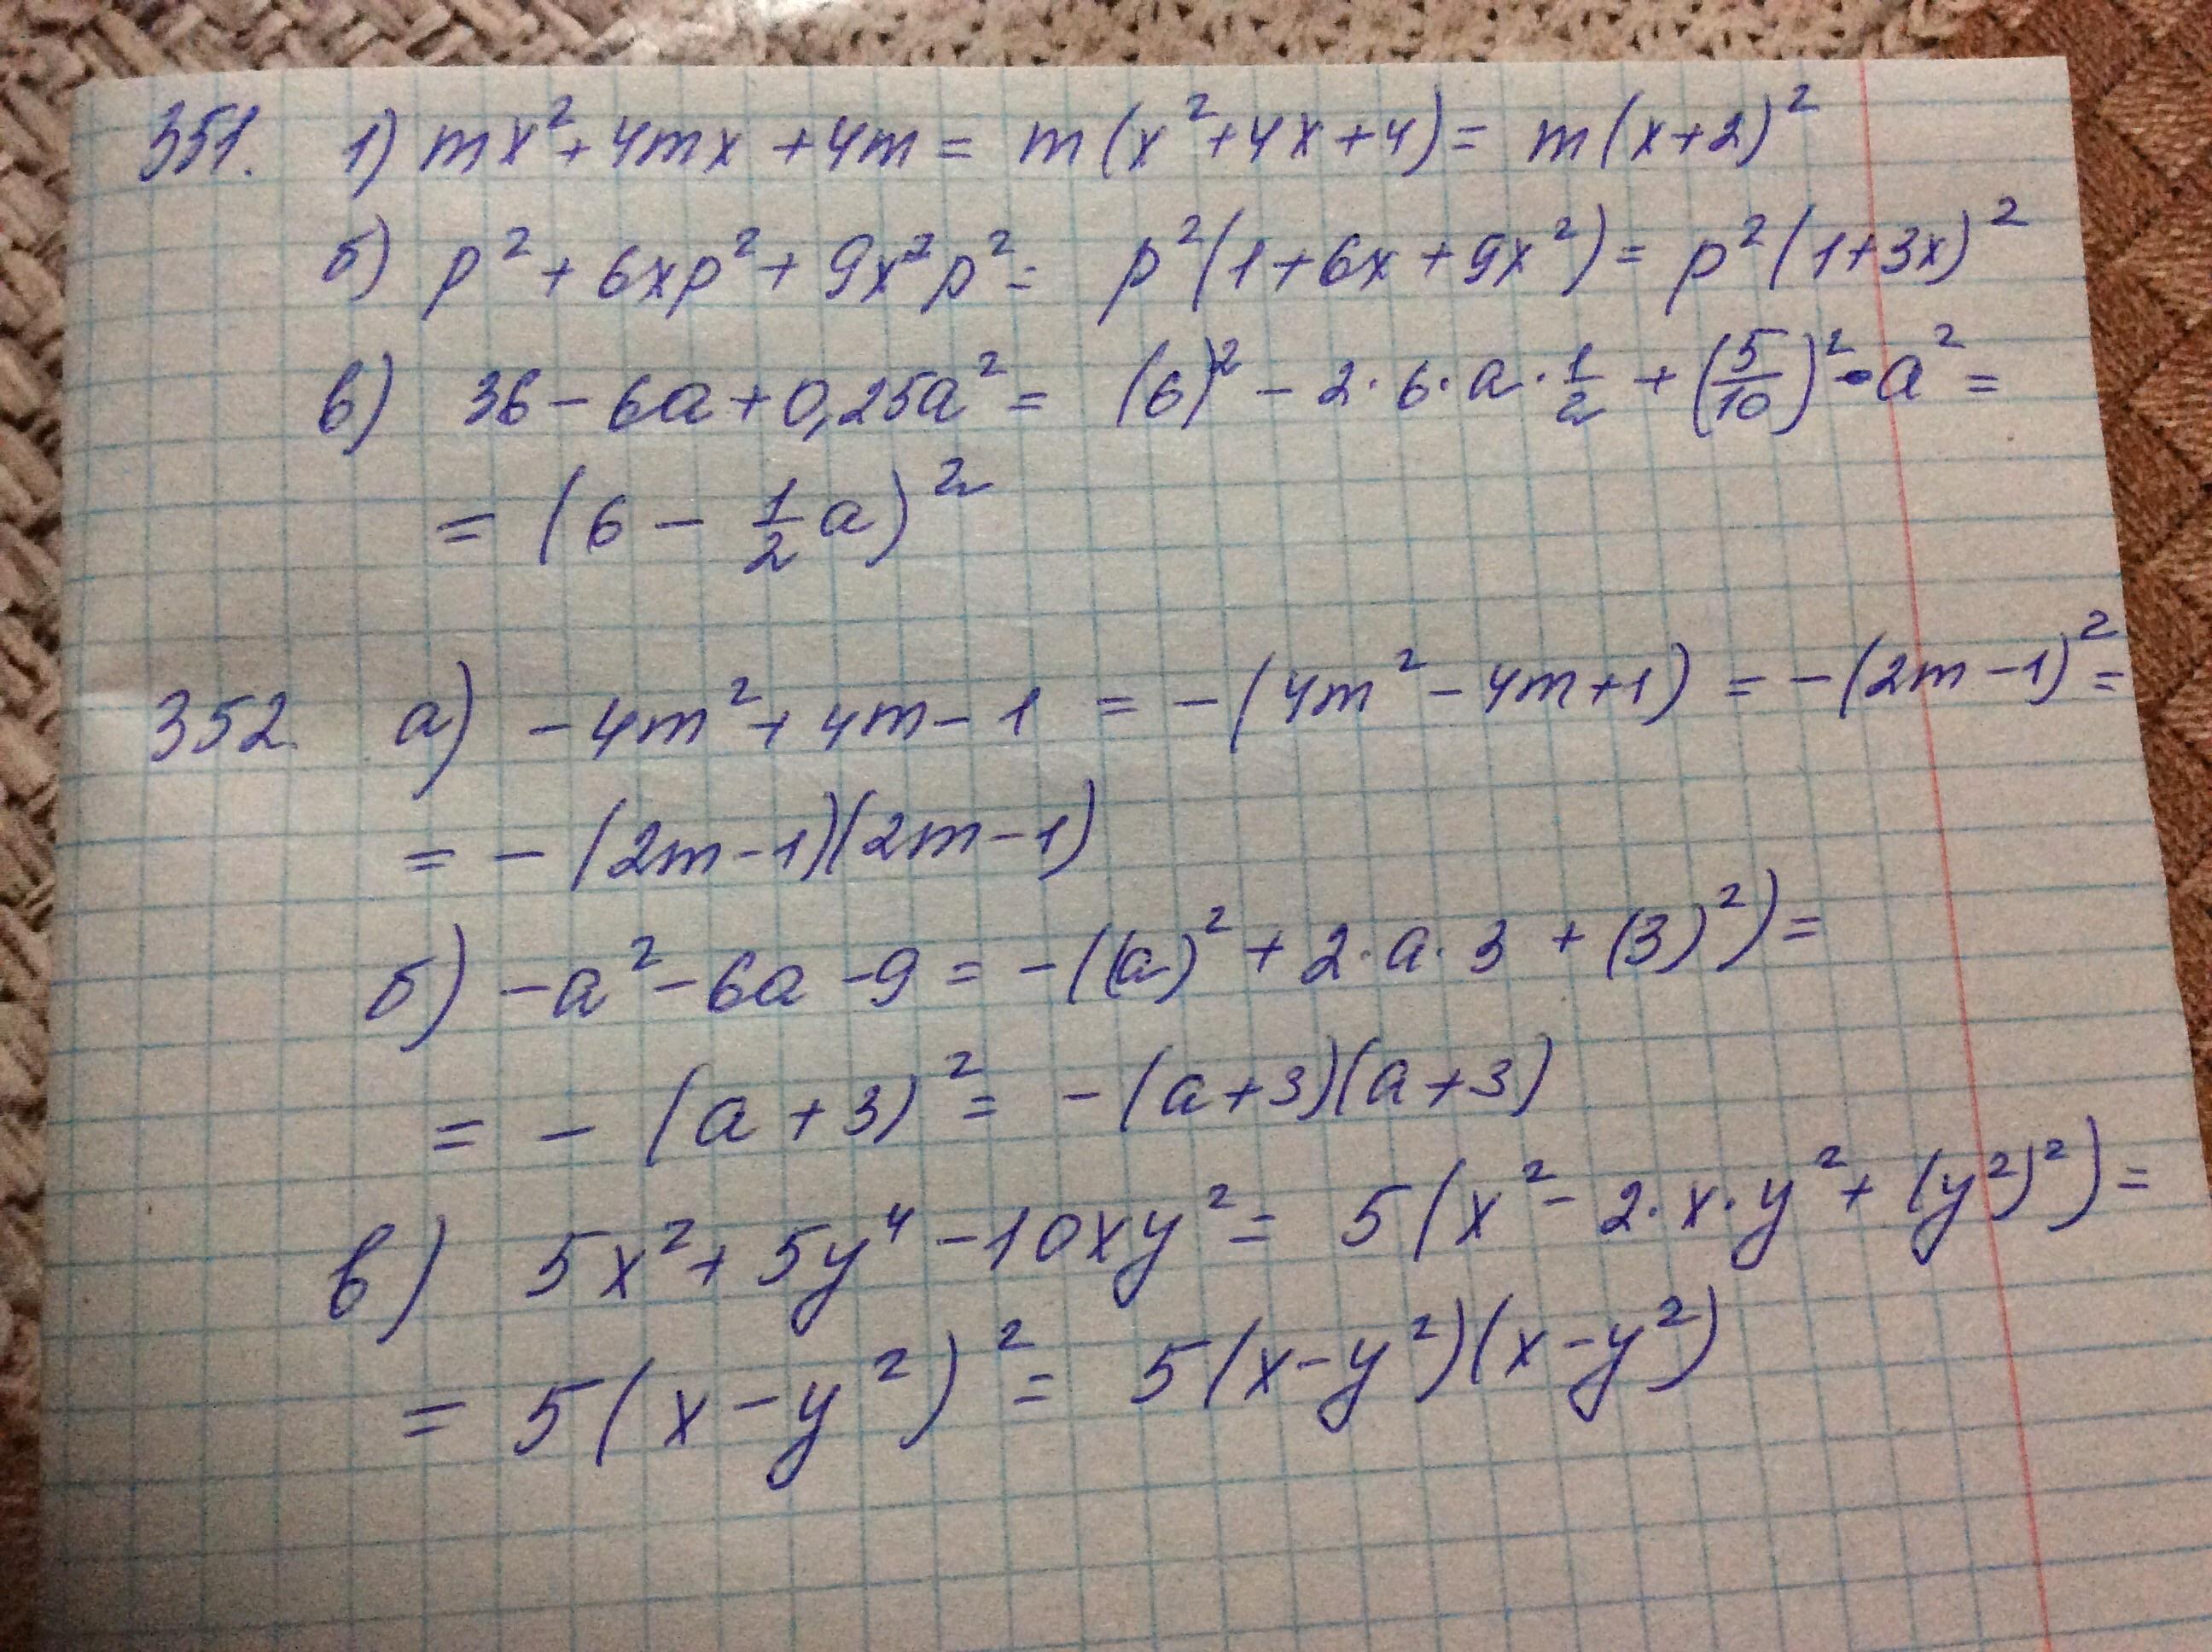 351. 1) mx² + 4mx + 4m = m(x² + 4x + 4) = m(x + 2)²
б) p² + 6xp² + 9x²p² = p²(1 + 6x + 9x²) = p²(1 + 3x)²
в) 36 - 6a + 0,25a² = (6)² - 2 · 6 · a · 1/2 + (5/10)² · a² =
= (6 - 1/2 a)²
352. а) - 4m² + 4m - 1 = - (4m² - 4m + 1) = - (2m - 1)² =
= - (2m - 1)(2m - 1)
б) - a² - 6a - 9 = - ((a)² + 2 · a · 3 + (3)²) =
= - (a + 3)² = - (a + 3)(a + 3)
в) 5x² + 5y⁴ - 10xy² = 5(x² - 2 · x · y² + (y²)²) =
= 5(x - y²)² = 5(x - y²)(x - y²)